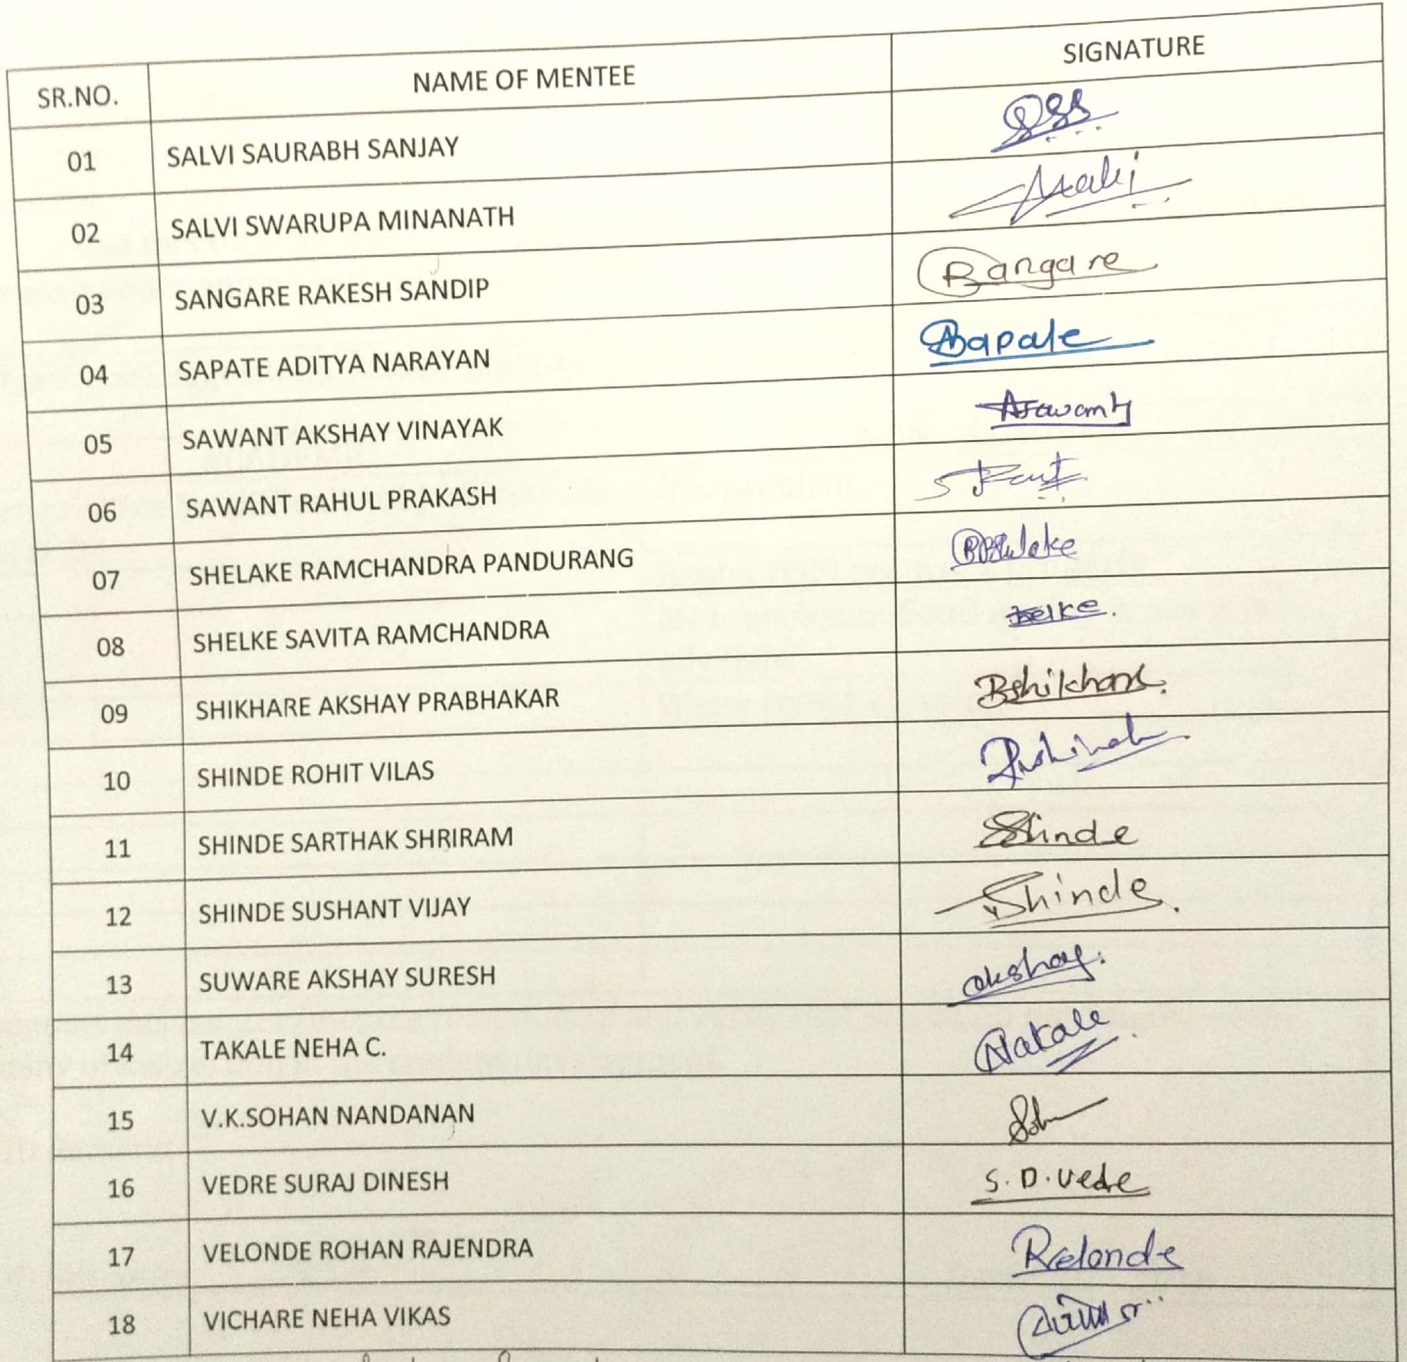 SR.NO. NAME OF MENTEE SIGNATURE
01 SALVI SAURABH SANJAY
02 SALVI SWARUPA MINANATH
03 SANGARE RAKESH SANDIP
04 SAPATE ADITYA NARAYAN
05 SAWANT AKSHAY VINAYAK
06 SAWANT RAHUL PRAKASH
07 SHELAKE RAMCHANDRA PANDURANG
08 SHELKE SAVITA RAMCHANDRA
09 SHIKHARE AKSHAY PRABHAKAR
10 SHINDE ROHIT VILAS
11 SHINDE SARTHAK SHRIRAM Shinde
12 SHINDE SUSHANT VIJAY Shinde
13 SUWARE AKSHAY SURESH akshay
14 TAKALE NEHA C.
15 V.K.SOHAN NANDANAN
16 VEDRE SURAJ DINESH S.D.Vedre
17 VELONDE ROHAN RAJENDRA
18 VICHARE NEHA VIKAS